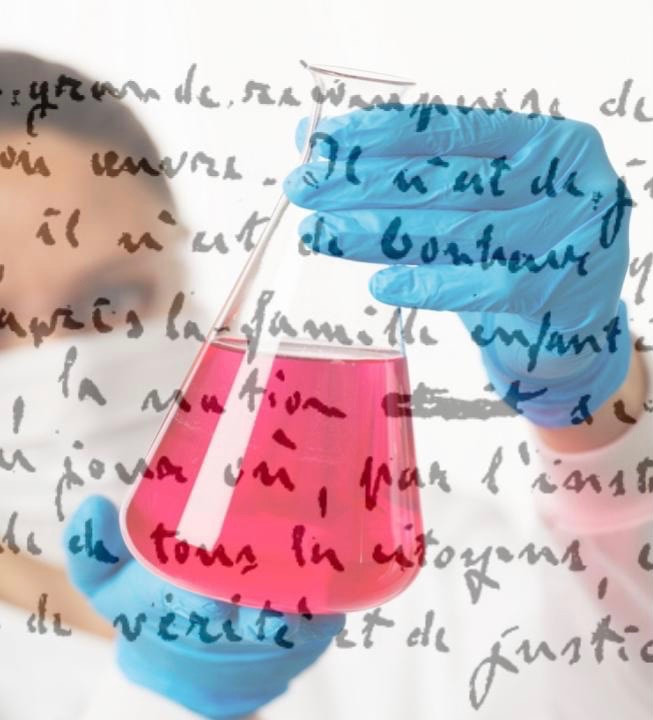 grande récompense de
avoir œuvré. Il n'est de
il n'est de bonheur
après la famille enfant
, la nation
jour où, par l'inst
de tous les citoyens,
de vérité et de justic